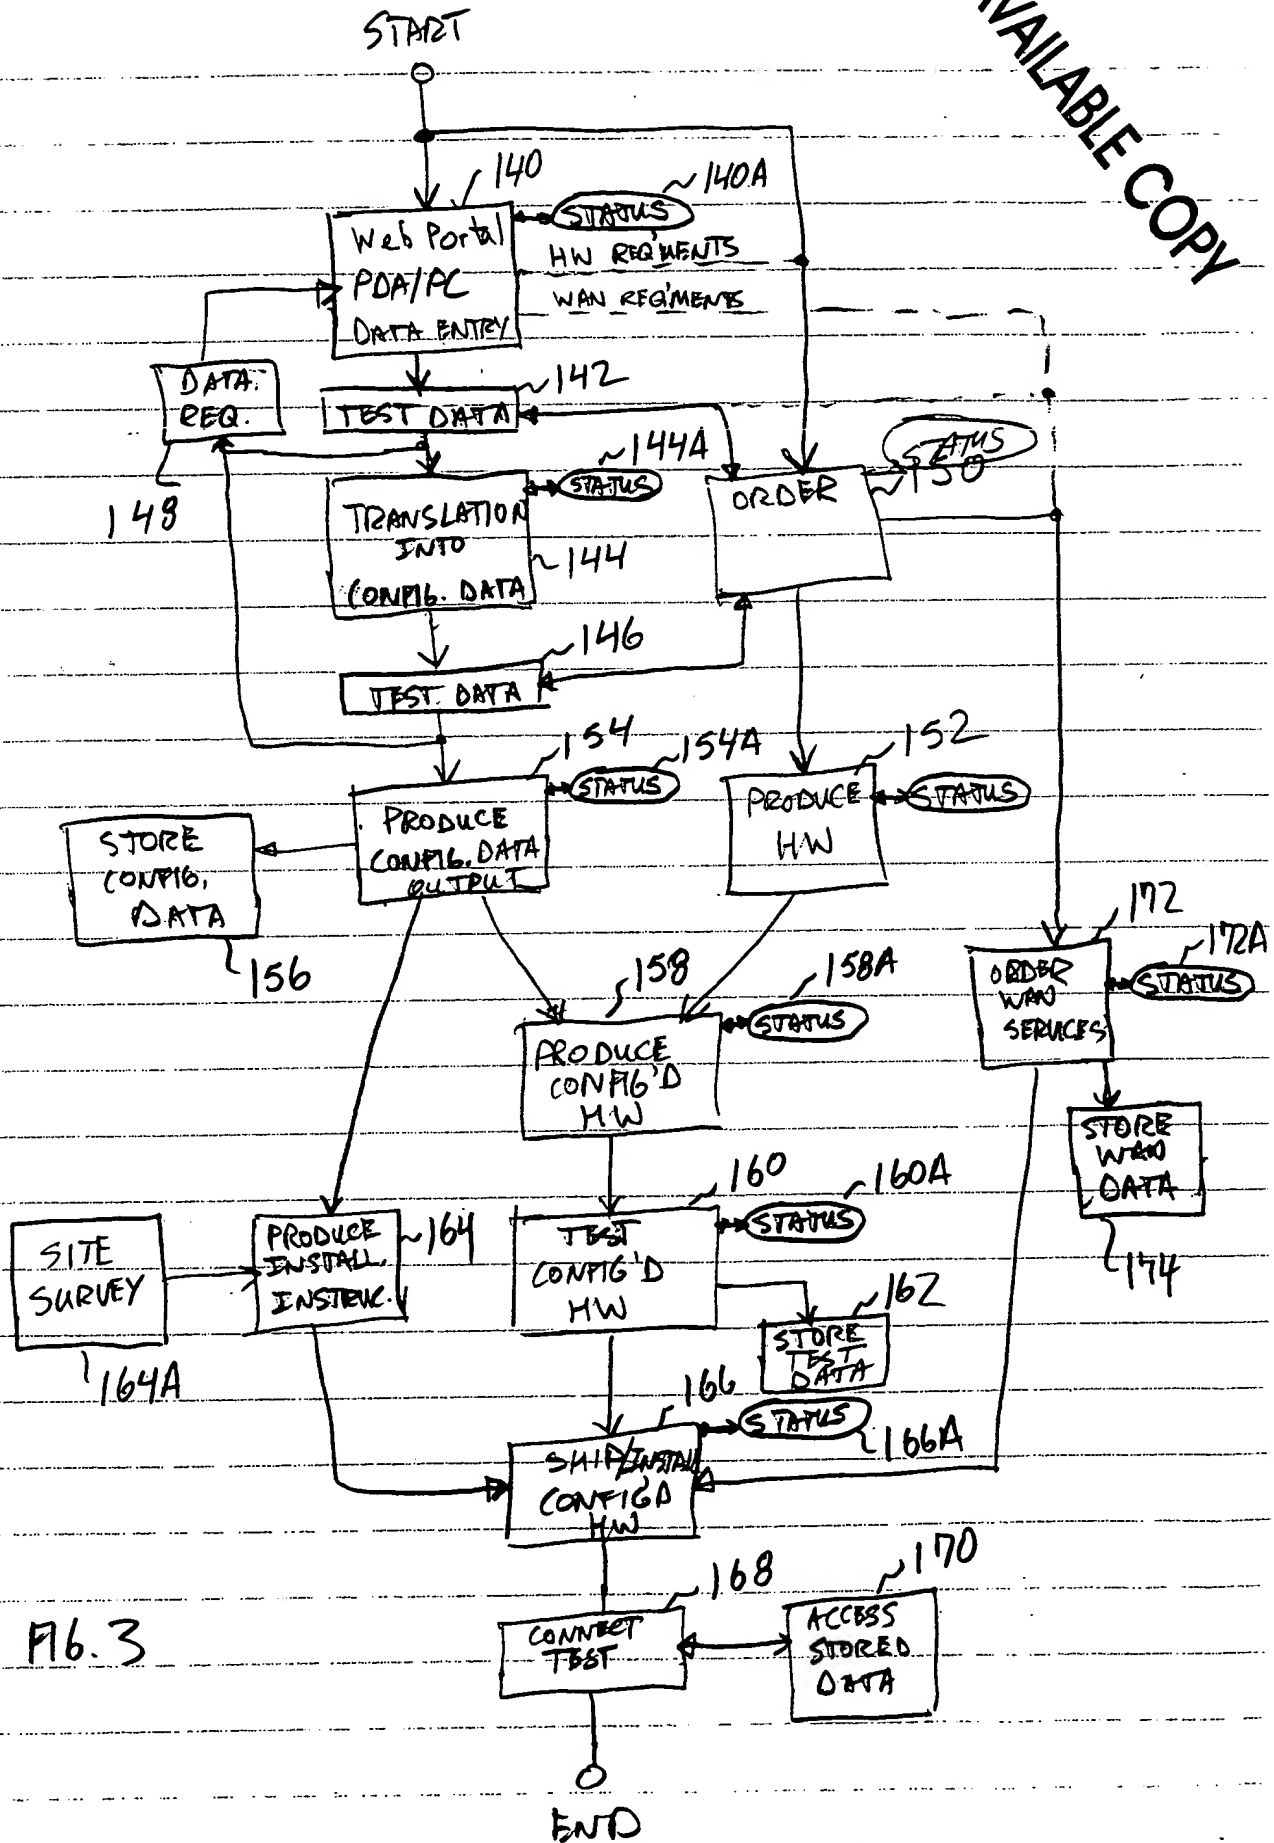 START
AVAILABLE COPY
140
140A
STATUS
Web Portal
PDA/PC
DATA ENTRY
HW REQ'MENTS
WAN REQ'MENTS
DATA.
REQ.
148
142
TEST DATA
144A
STATUS
TRANSLATION
INTO
CONFIG. DATA
144
STATUS
150
ORDER
146
TEST. DATA
154
154A
STATUS
PRODUCE
CONFIG. DATA
OUTPUT
152
STATUS
PRODUCE
HW
STORE
CONFIG.
DATA
156
172
172A
STATUS
ORDER
WAN
SERVICES
158
158A
STATUS
PRODUCE
CONFIG'D
HW
STORE
WAN
DATA
174
160
160A
STATUS
TEST
CONFIG'D
HW
SITE
SURVEY
164A
PRODUCE
INSTALL.
INSTRUC.
164
162
STORE
TEST
DATA
166
STATUS
166A
SHIP/INSTALL
CONFIG'D
HW
168
CONNECT
TEST
170
ACCESS
STORED
DATA
FIG. 3
END